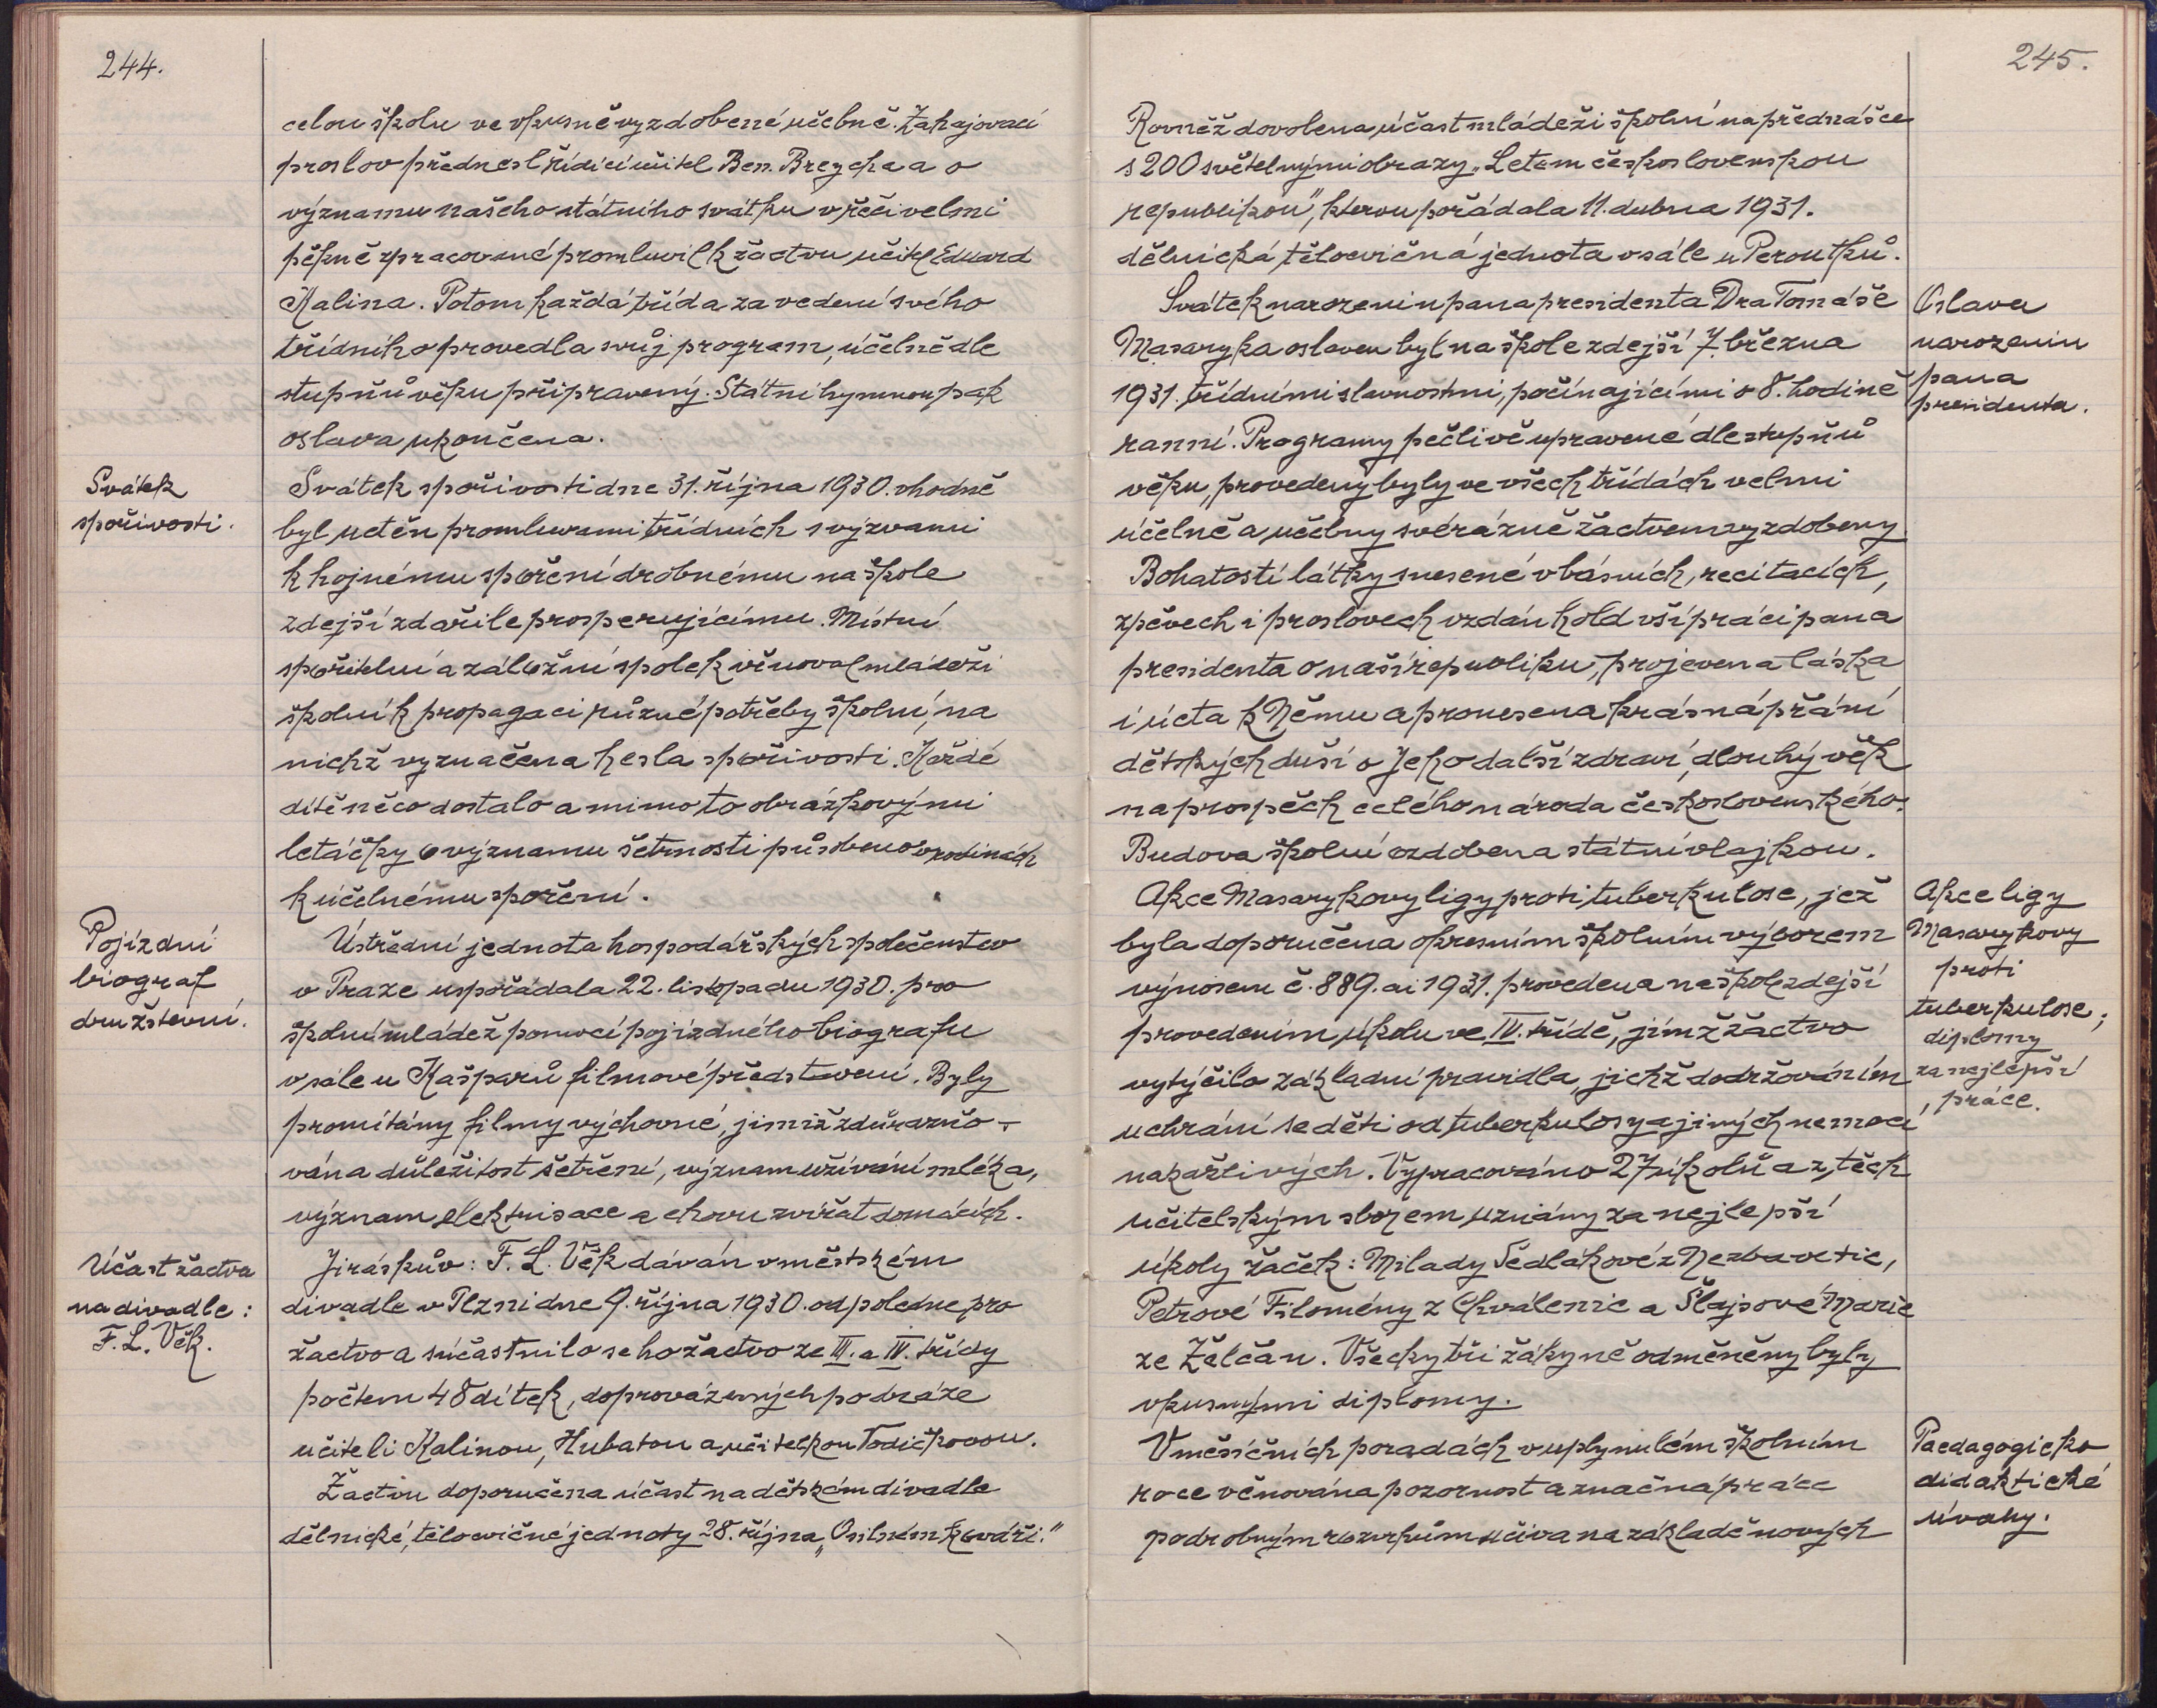 244.
celou školu ve vkusně vyzdobené učebně. Zahajovací
proslov přednesl řídící učitel Ben. Brejcha a o
významu našeho státního svátku v řeči velmi
pěkně zpracované promluvil k žactvu učitel Eduard
Kalina. Potom každá třída za vedení svého
třídního provedla svůj program, účelně dle
stupňů věku připravený. Státní hymnou pak
oslava ukončena.
Svátek
spořivosti.
Svátek spořivosti dne 31. října 1930. vhodně
byl uctěn promluvami třídních s výzvami
k hojnému spoření drobnému na škole
zdejší zdařile prosperujícímu. Místní
spořitelní a záložní spolek věnoval mládeži
školní k propagaci různé potřeby školní, na
nichž vyznačena hesla spořivosti. Každé
dítě něco dostalo a mimo to obrázkovými
letáčky o významu šetrnosti působeno v rodinách
k účelnému spoření.
Pojízdní
biograf
družstevní.
Ústřední jednota hospodářských společenstev
v Praze uspořádala 22. listopadu 1930. pro
školní mládež pomocí pojízdného biografu
v sále u Kašparů filmové představení. Byly
promítány filmy výchovné, jimiž zdůrazňo-
vána důležitost šetření, význam užívání mléka,
význam elektrisace a chovu zvířat domácích.
Účast žactva
na divadle:
F. L. Věk.
Jiráskův: F. L. Věk dáván v městském
divadle v Plzni dne 9. října 1930. odpoledne pro
žactvo a súčastnilo se ho žactvo ze III. a IV. třídy
počtem 48 dítek, doprovázených po dráze
učiteli Kalinou, Hubatou a učitelkou Todičkovou.
Žactvu doporučena účast na dětském divadle
dělnické tělocvičné jednoty 28. října „O silném kováři."
245.
Rovněž dovolena účast mládeži školní na přednášce
s 200 světelnými obrazy „Letem československou
republikou", kterou pořádala 11. dubna 1931.
dělnická tělocvičná jednota v sále u Peroutků.
Oslava
narozenin
pana
presidenta.
Svátek narozenin pana presidenta Dra Tomáše
Masaryka oslaven byl na škole zdejší 7. března
1931. třídními slavnostmi, počínajícími o 8. hodině
ranní. Programy pečlivě upravené dle stupňů
věku, provedeny byly ve všech třídách velmi
účelně a učebny svérázně žactvem vyzdobeny
Bohatostí látky snesené v básních, recitacích,
zpěvech i proslovech vzdán hold vší práci pana
presidenta o naší republiku, projevena láska
i úcta k Němu a pronesena krásná přání
dětských duší o Jeho další zdraví, dlouhý věk
na prospěch celého národa československého.
Budova školní ozdobena státní vlajkou.
Akce ligy
Masarykovy
proti
tuberkulose;
diplomy
za nejlepší
práce.
Akce Masarykovy ligy proti tuberkulose, jež
byla doporučena okresním školním výborem
výnosem č. 889. ai 1931. provedena na škole zdejší
provedením úkolu ve IV. třídě, jímž žactvo
vytýčilo základní pravidla, jichž dodržováním
uchrání se děti od tuberkulosy a jiných nemocí
nakažlivých. Vypracováno 27 úkolů a z těch
učitelským sborem uznány za nejlepší
úkoly žaček: Milady Sedlákové z Nezbavetic,
Petrové Filomény z Chválenic a Šlajsové Marie
ze Želčan. Všecky tři žákyně odměněny byly
vkusnými diplomy.
Paedagogicko
didaktické
úvahy.
V měsíčních poradách v uplynulém školním
roce věnována pozornost a značná práce
podrobným rozvrhům učiva na základě nových